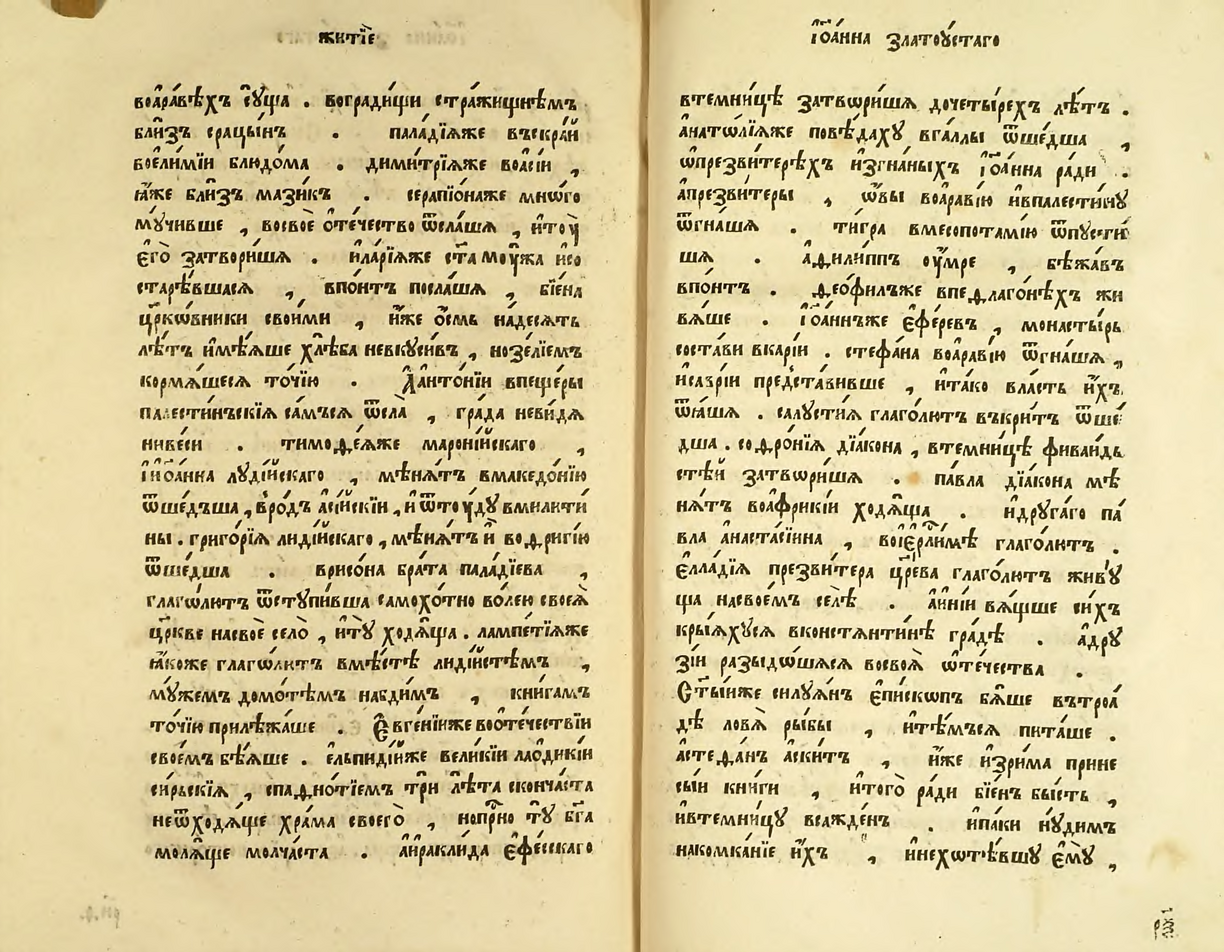 житїе
воара́вѣхъ сꙋ́ща . воградищи стражищнѣмъ
бли́зъ срацы́нъ . пала́дїѧже въскра́й
воелимїи блюдо́ма . дими́трїѧже воасїи ,
ꙗ́же бли́зъ мази́къ . серапїо́наже мно́ѡго
мꙋ́чивше , восвоѐ ѻте́чество ѿсла́шѧ , и҆тоу̀
є҆го̀ затвори́шѧ . и҆ларїѧже ста моу́жа исо
старѣ́вшасѧ , впо́нтъ посла́шѧ , бїе́на
цр҃ко́вники свои́ми , и҆́же ѻ́смь на́десѧть
лѣ́тъ и҆мѣ́ѧше хлѣ́ба невкꙋси́въ , нозе́лїемъ
кормѧ́шесѧ то́чїю . А҆анто́нїи впеще́ры
палести́нъскїѧ са́мъсѧ ѿсла̀ , гра́да неви́дѧ
нивеси . тимоѳе́ѧже маронїйскаго ,
і҆ні҆ѻа́нна лꙋді́йскаго , мѣнѧ́тъ вмакедо́нїю
ѿше́дъша , вро́дъ асі́йскїи , и҆ ѿтоу́дꙋ вмилити́
ны . григо́рїѧ лиді́йскаго , мѣнѧ́тъ и҆ воѳриги́ю
ѿше́дша . врисо́на бра́та пала́дїева ,
глаго́лютъ ѿстꙋпи́вша самохо́тно во́лею своеѧ̀
цр҃кве насвоѐ село̀ , и҆тꙋ̀ ходѧ́ща . лампе́тїѧже
ꙗ҆́коже глаго́литъ вмѣ́стѣ лиді́йстѣмъ ,
мꙋ́жемъ домо́тѣмъ наѳди́мъ , кни́гамъ
то́чїю прилѣ́жаше . Є҆вге́нїиже воѻте́чествїи
свое́мъ бѣ́ѧше . є҆льпиді́йже вели́кїи лаоди́кїи
си́рьскїѧ , спаѳно́тїемъ три̂ лѣ́та сконча́ста
неѿходѧ́ще хра́ма своего̀ , нопрⷭ҇но тꙋ̀ бг҃а
молѧ́ще молча́ста . а҆и҆ракли́да є҆фе́сскаго
і҆ѻа́нна златоꙋ́стаго
втемни́цѣ затвори́шѧ дочеты́рехъ лѣ́тъ .
а҆нато́лїѧже повѣ́дахꙋ вга́ллы ѿше́дша ,
ѡпрезви́терѣхъ изгна́ныхъ і҆ѻа́нна ра́ди .
а҆презви́теры , ѡ҆́вы воара́вїю и҆впалести́нꙋ
ѿгна́шѧ . ти́гра вмесопота́мїю ѿпꙋсти́
шѧ . а҆ѳили́ппъ оу҆́мре , бѣжа́въ
впо́нтъ . ѳео́филъже впеѳлаго́нѣхъ жи
вѧ́ше . і҆ѻа́ннъже є҆фе́ревъ , монасты́рь
соста́ви вкарі́и . стефа́на воара́вїю ѿгна́шѧ ,
и҆са́врїи предста́вивше , и҆та́ко власть и҆́хъ
ѿꙗ́шѧ . салꙋсти́ѧ глаго́лютъ въкри́тъ ѿше́
дша . соѳро́нїѧ дїа́кона , втемни́цѣ фиваидь
стѣй затвори́шѧ . па́вла дїа́кона мѣ
нѧ́тъ воа́фрикїи ходѧ́ща . и҆дрꙋга́го па́
вла анаста́сїина , воі҆ерⷭ҇ли́мѣ глаго́литъ .
є҆лла́дїѧ презви́тера цр҃е́ва глаго́лютъ живꙋ́
ща насвое́мъ селѣ̀ . а҆и҆ні́и вѧ́щше си́хъ
кры́ѧхꙋсѧ вконстѧнти́нѣ гра́дѣ . а҆дрꙋ
зі́и разыдо́шѧсѧ восвоѧ̀ ѡ҆те́чества .
Ст҃ы́иже силꙋѧ́нъ є҆пи́скопъ бѧ́ше вътроа́
дѣ ловѧ̀ ры́бы , и҆тѣ́мъсѧ пита́ше .
а҆стеѳа́нъ аски́тъ , и҆́же и҆зри́ма прине
сы́и кни́ги , и҆того̀ ра́ди бїе́нъ бы́сть ,
и҆втемни́цꙋ всажде́нъ . и҆па́ки нꙋ́димъ
накомка́нїе и҆́хъ , и҆нехотѣ́вшꙋ є҆мꙋ̀ ,